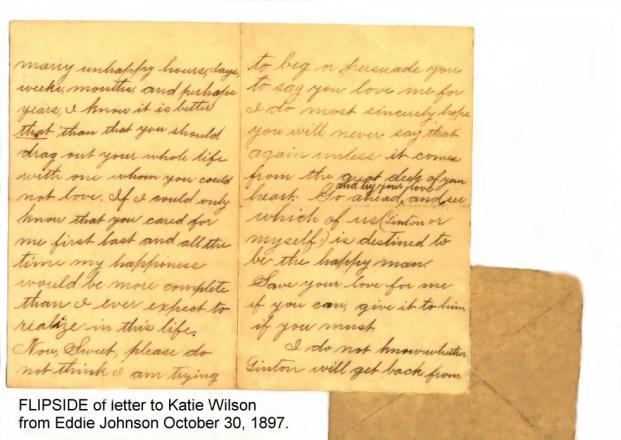 many unhappy hours, days,
weeks, months, and perhaps
years, I know it is better
that than that you should
drag out your whole life
with one whom you could
not love. If I could only
know that you cared for
me first last and all the
time my happiness
would be more complete
than I ever expect to
realize in this life.
Now, Sweet, please do
not think I am trying
to beg or persuade you
to say you love me for
I do most sincerely hope
you will never say that
again unless it comes
from the great deep of your
and try your love
heart. Go ahead, and see
which of us (Linton or
myself) is destined to
be the happy man.
Save your love for me
if you can, give it to him
if you must
I do not know whether
Linton will get back from
FLIPSIDE of letter to Katie Wilson
from Eddie Johnson October 30, 1897.